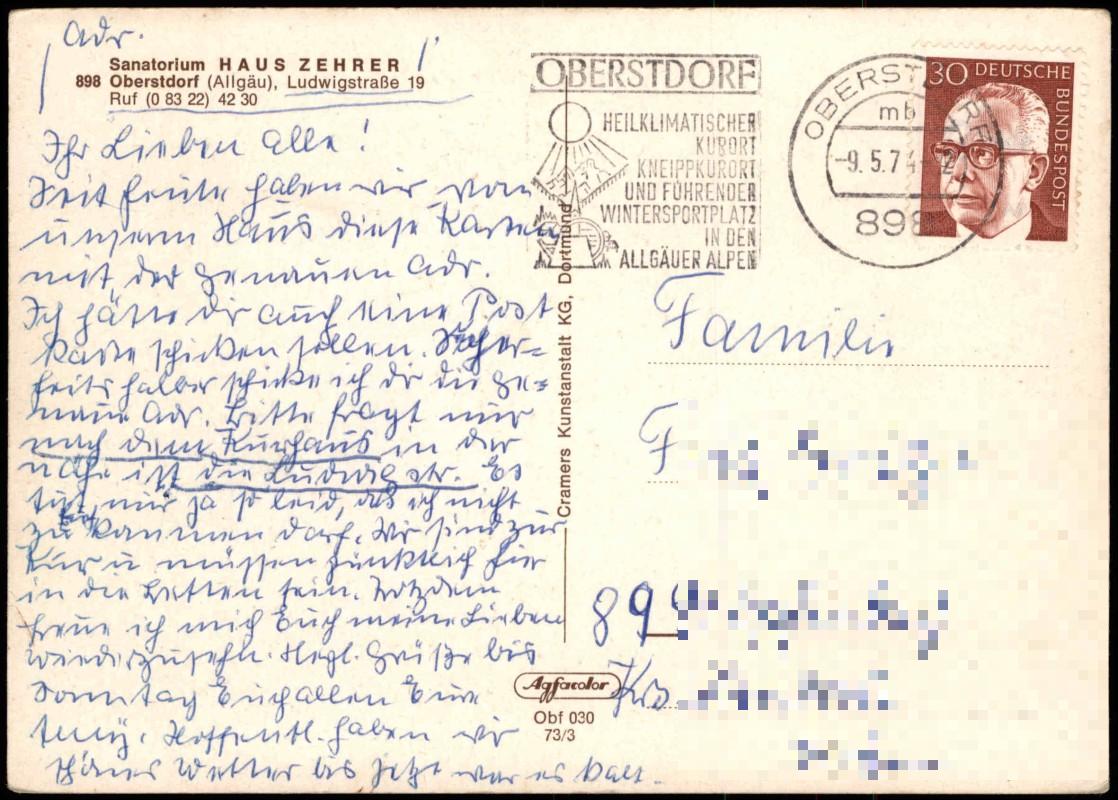 Adr.
Sanatorium HAUS ZEHRER
898 Oberstdorf (Allgäu), Ludwigstraße 19
Ruf (0 83 22) 42 30
Ihr Lieben Alle!
Seit heute haben wir von
unserm Haus diese Karten
mit der genauen Adr.
Ich hätte dir auch eine Post
karte schicken sollen. Sicher=
heits halber schicke ich dir die ge=
naue Adr. Bitte fragt nur
nach dem Kurhaus in der
nähe ist die Ludwigstr. Es
tut mir ja so leid, das ich nicht
zu kommen darf. Wir sind zur
Kur u müssen pünktlich hier
in die Betten sein. Trotzdem
freue ich mich Euch meine Lieben
wiederzusehn. Hezl. Grüße bis
Sonntag Euch allen Eure
Hoffentl. haben wir
schönes Wetter bis Jetzt war es kalt.
OBERSTDORF
HEILKLIMATISCHER
KURORT
KNEIPPKURORT
UND FÜHRENDER
WINTERSPORTPLATZ
IN DEN
ALLGÄUER ALPEN
OBERSTDORF
mb
-9.5.74
898
30 DEUTSCHE
BUNDESPOST
Cramers Kunstanstalt KG, Dortmund
Familie
F
89
Krs
Agfacolor
Obf 030
73/3